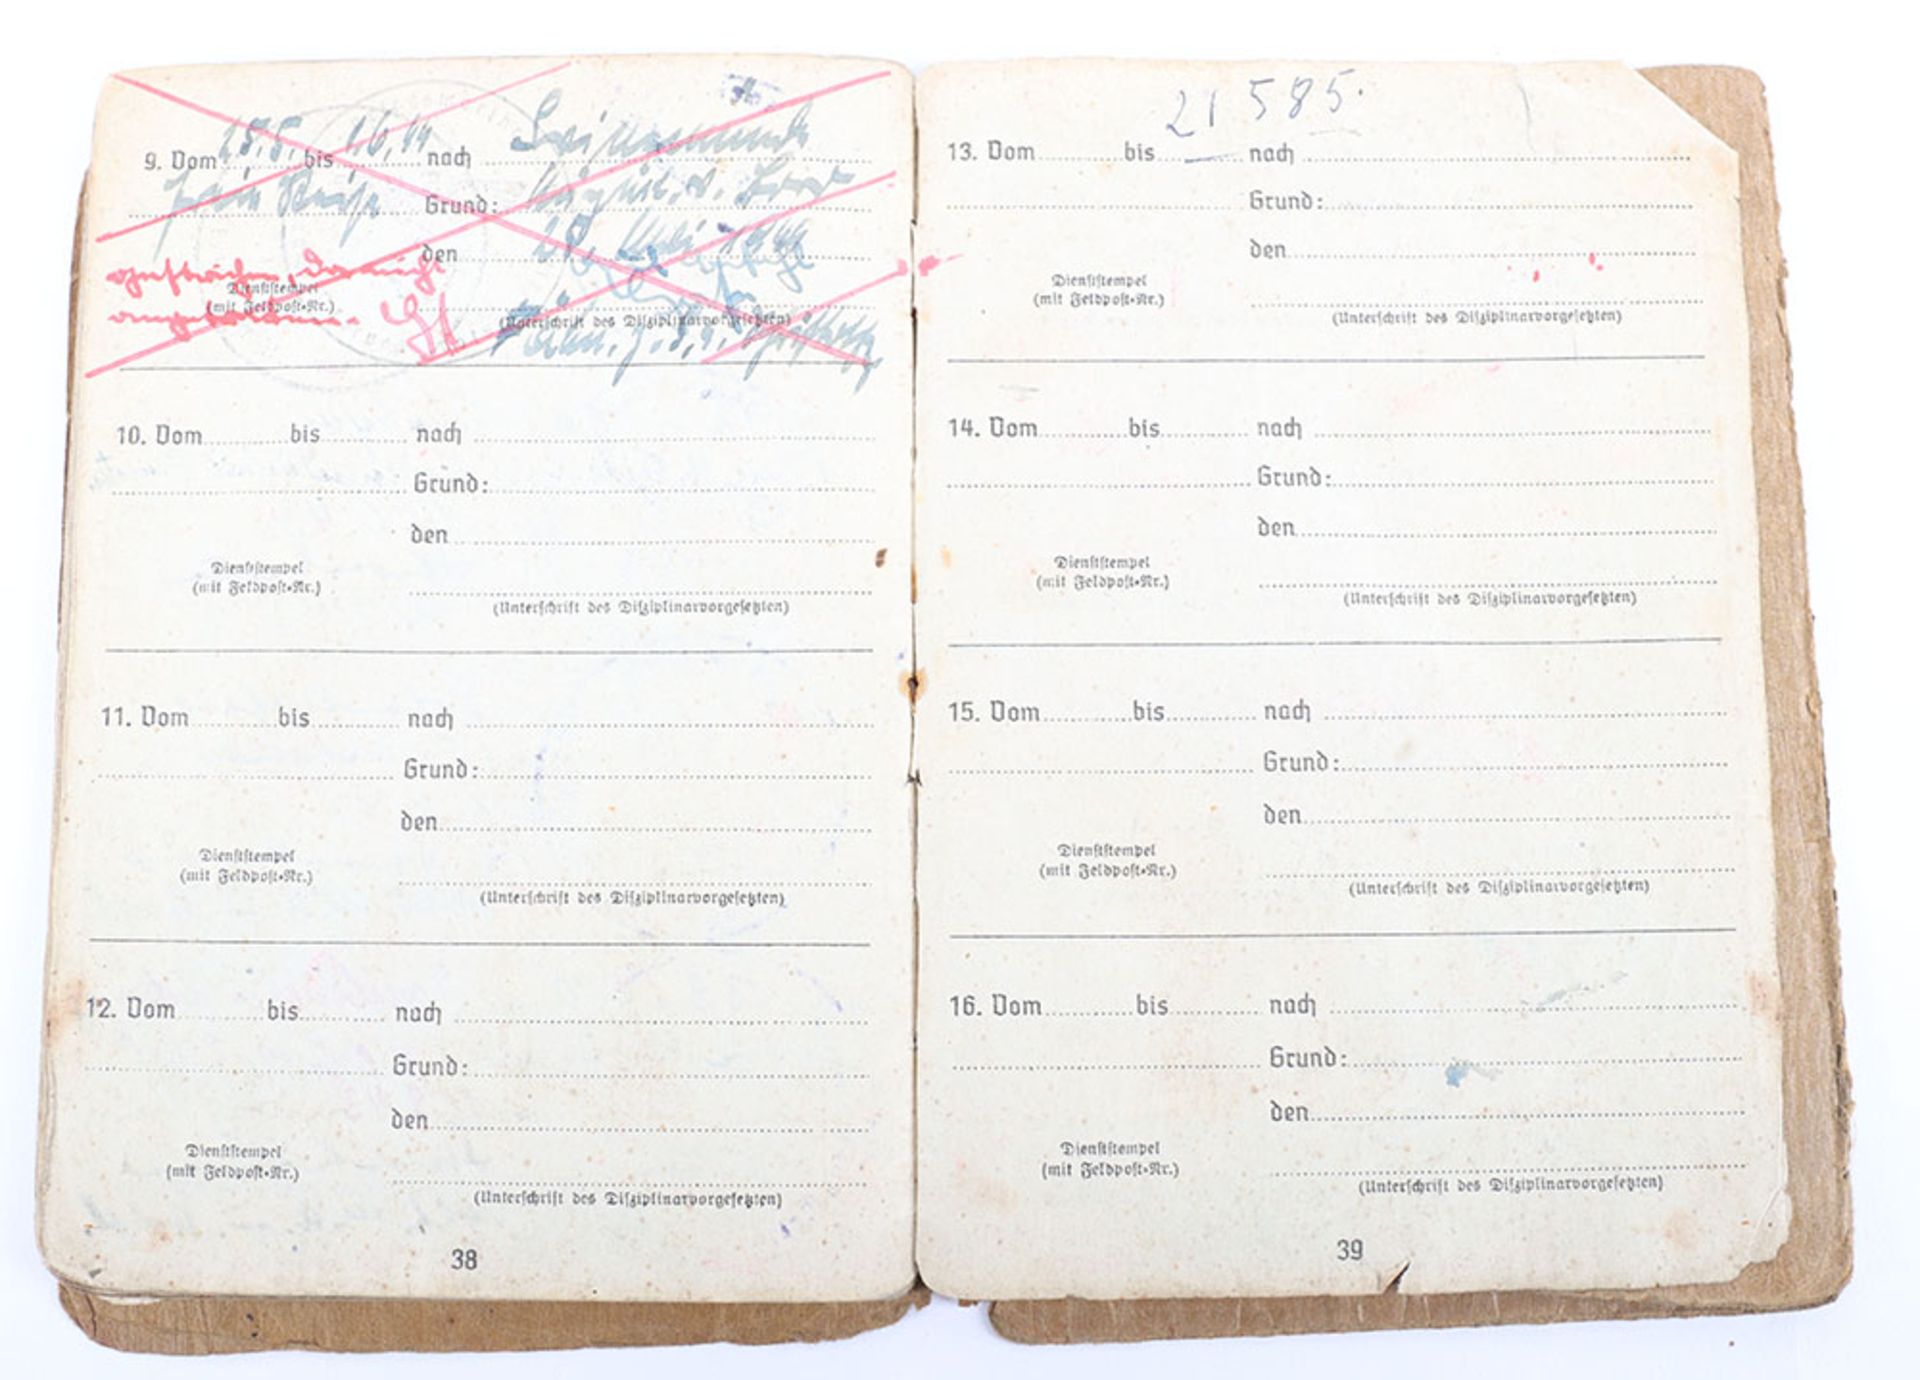 9. Vom 28.5. bis 1.6.44 nach Swinemünde
Grund:
den 28. Mai 1944
gestrichen, da nicht
Dienststempel
(mit Feldpost-Nr.)
angetreten.
(Unterschrift des Disziplinarvorgesetzten)
10. Vom bis nach
Grund:
den
Dienststempel
(mit Feldpost-Nr.)
(Unterschrift des Disziplinarvorgesetzten)
11. Vom bis nach
Grund:
den
Dienststempel
(mit Feldpost-Nr.)
(Unterschrift des Disziplinarvorgesetzten)
12. Vom bis nach
Grund:
den
Dienststempel
(mit Feldpost-Nr.)
(Unterschrift des Disziplinarvorgesetzten)
38
21 585.
13. Vom bis nach
Grund:
den
Dienststempel
(mit Feldpost-Nr.)
(Unterschrift des Disziplinarvorgesetzten)
14. Vom bis nach
Grund:
den
Dienststempel
(mit Feldpost-Nr.)
(Unterschrift des Disziplinarvorgesetzten)
15. Vom bis nach
Grund:
den
Dienststempel
(mit Feldpost-Nr.)
(Unterschrift des Disziplinarvorgesetzten)
16. Vom bis nach
Grund:
den
Dienststempel
(mit Feldpost-Nr.)
(Unterschrift des Disziplinarvorgesetzten)
39